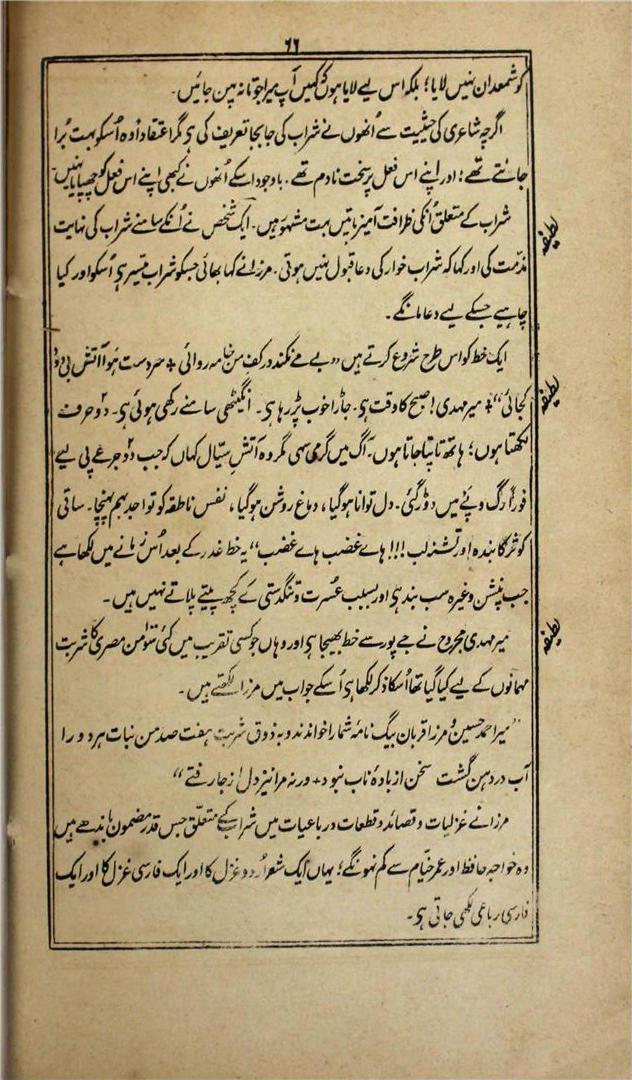 ۶۶
کو شمعدان نہیں لایا؛ بلکہ اس لیے لایا ہوں کہ کہیں آپ میرا جوتا نہ پہن جائیں۔
اگرچہ شاعری کی حیثیت سے اُنھوں نے شراب کی جابجا تعریف کی ہی مگر اعتقاداً وہ اُسکو بہت بُرا
جانتے تھے؛ اور اپنے اس فعل پر سخت نادم تھے۔ باوجود اسکے اُنھوں نے کبھی اپنے اس فعل کو چھپایا نہیں۔
شراب کے متعلق اُنکی ظرافت آمیز باتیں بہت مشہور ہیں۔ ایک شخص نے اُنکے سامنے شراب کی نہایت
لطیفہ
مذمت کی اور کہا کہ شراب خوار کی دعا قبول نہیں ہوتی۔ مرزا نے کہا بھائی جسکو شراب میسر ہی اُسکو اور کیا
چاہیے جسکے لیے دعا مانگے۔
ایک خط کو اس طرح شروع کرتے ہیں "بے مے نکند در کف من خامہ روائی + سردست ہوا آتش بی دود
لطیفہ
کجائی" + میر مہدی! صبح کا وقت ہی۔ جاڑا خوب پڑ رہا ہی۔ انگیٹھی سامنے رکھی ہوئی ہی۔ دو حرف
لکھتا ہوں؛ ہاتھ تاپتا جاتا ہوں۔ آگ میں گرمی سہی مگر وہ آتش سیّال کہاں کہ جب دو جرعے پی لیے
فوراً رگ و پے میں دوڑ گئی۔ دل توانا ہو گیا، دماغ روشن ہو گیا، نفس ناطقہ کو تواجد بہم پہنچا۔ ساقی
کوثر کا بندہ اور تشنہ لب!!! ہاے غضب ہاے غضب" یہ خط غدر کے بعد اُس زمانے میں لکھا ہے
جب پنشن وغیرہ سب بند ہی اور بسبب عُسرت و تنگدستی کے کچھ پیتے پلاتے نہیں ہیں۔
میر مہدی مجروح نے جے پور سے خط بھیجا ہی اور وہاں جو کسی تقریب میں کئی سَو من مصری کا شربت
لطیفہ
مہمانوں کے لیے کیا گیا تھا اُسکا ذکر لکھا ہی اُسکے جواب میں مرزا لکھتے ہیں۔
"میر احمد حسین و مرزا قربان بیگ نامۂ شما را خواندند و بہ ذوق شربت ہفت صد من نبات ہر دو را
آب در دہن گشت سخن از بادۂ ناب نبود + ورنہ مرا نیز دل از جا رفتے"
مرزا نے غزلیات و قصائد و قطعات و رباعیات میں شراب کے متعلق جس قدر مضمون باندھے ہیں
وہ خواجہ حافظ اور عمر خیّام سے کم نہونگے؛ یہاں ایک شعر اُردو غزل کا اور ایک فارسی غزل کا اور ایک
فارسی رباعی لکھی جاتی ہی۔